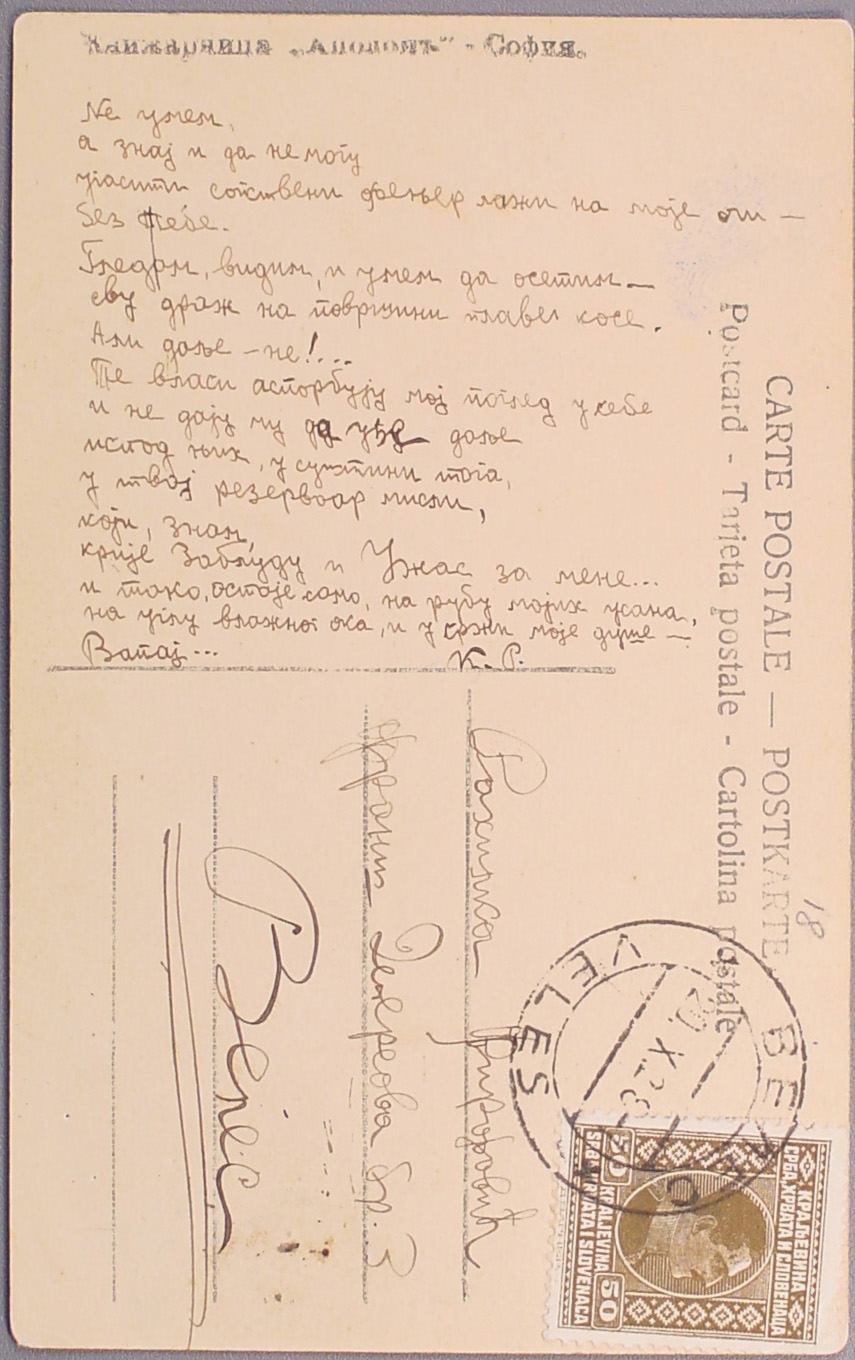 Книжарница „Аполонъ" - София.
Не умем,
а знај и да не могу
угасити сопствени фењер лажи на моје очи —
без тебе.
Гледам, видим, и умем да осетим —
сву драж на површини плаве косе.
Али даље - не!...
Те власи аспорбују мој поглед у себе
и не дају му да уђе даље
испод њих, у суштини тога,
у твој резервоар мисли,
који, знам,
крије Заблуду и Ужас за мене...
и тако, остаје само, на рубу мојих усана,
на углу влажног ока, и у сржи моје душе —
Вапај...
К. Р.
CARTE POSTALE — POSTKARTE
Postcard - Tarjeta postale - Cartolina postale
18
ВЕЛЕС
VELES
X.28
КРАЉЕВИНА
СРБА, ХРВАТА И СЛОВЕНАЦА
50 KRALJEVINA 50
SRBA, HRVATA I SLOVENACA
Рахилка
бр. 3
Велес